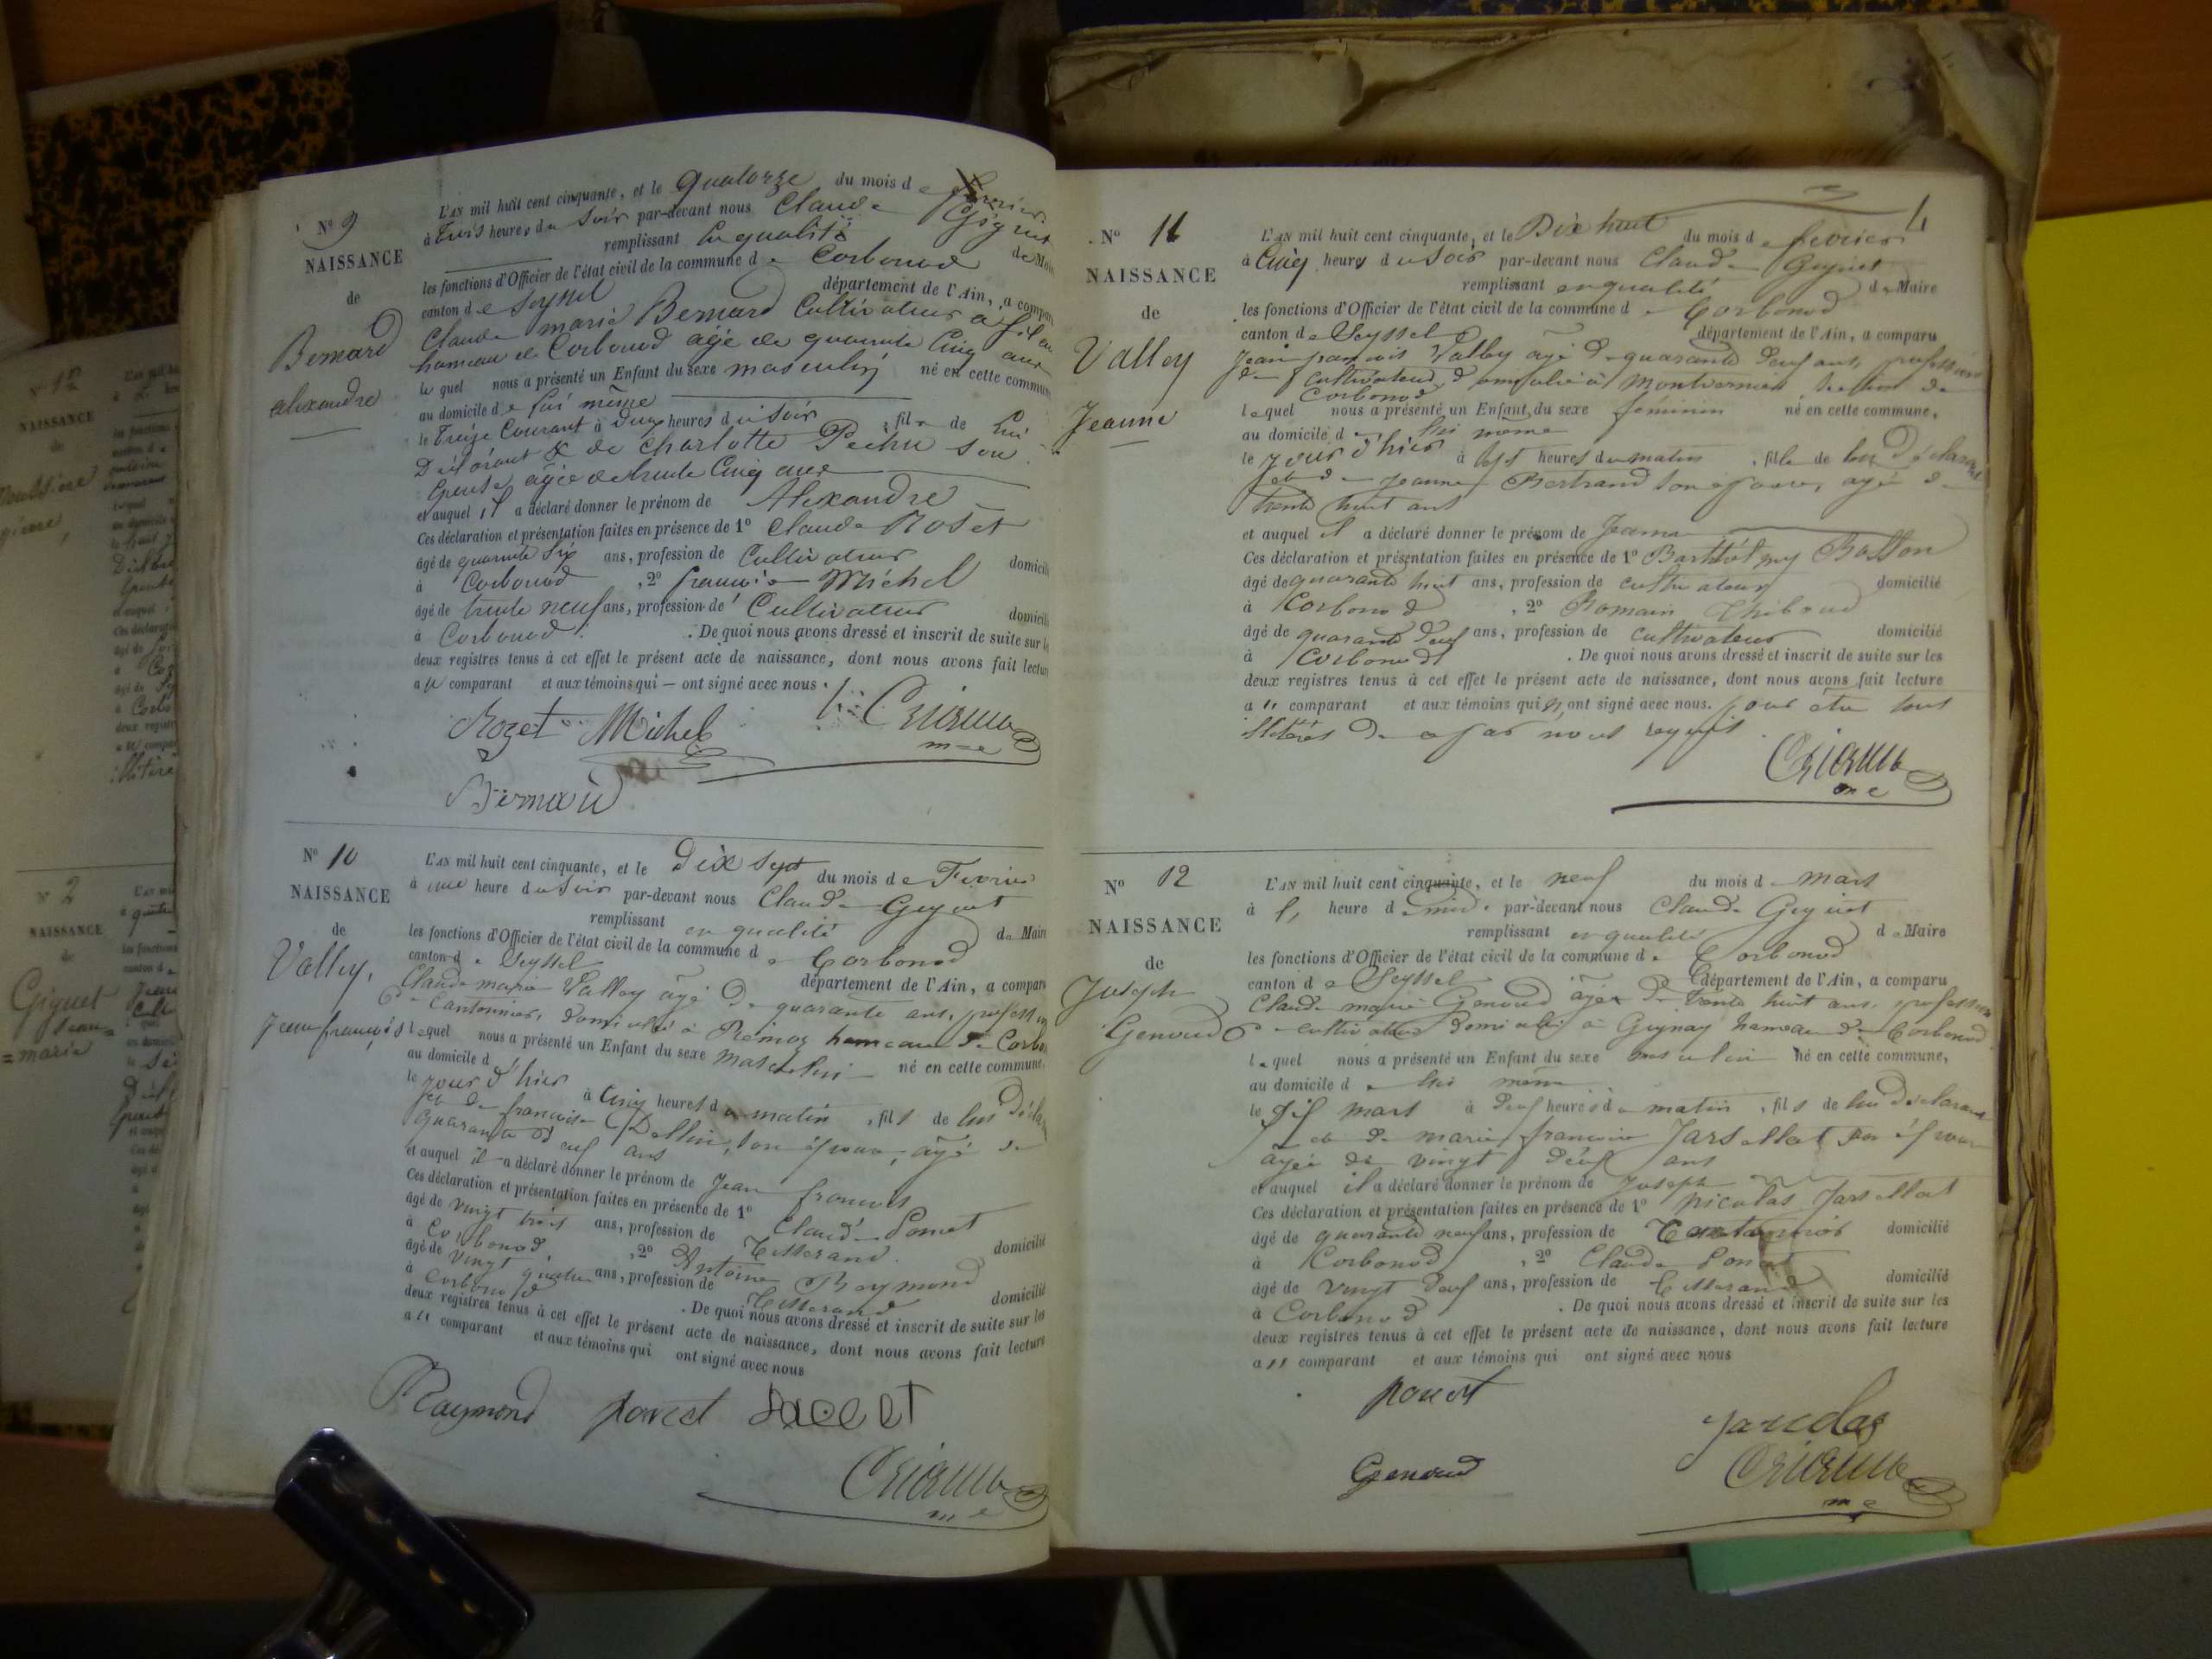 N° 9
NAISSANCE
de
Bernard
alexandre
L'AN mil huit cent cinquante, et le quatorze du mois de fevrier
à trois heures du Soir par-devant nous Claude Gignet
remplissant en qualité de Maire
les fonctions d'Officier de l'état civil de la commune de Corbonod
canton de Seyssel département de l'Ain, a comparu
Claude marie Bernard Cultivateur à
hameau de Corbonod âgé de quarante Cinq ans
lequel nous a présenté un Enfant du sexe masculin né en cette commune
au domicile de lui même
le Treize Courant à Deux heures du Soir , fils de Lui
Déclarant & de Charlotte Pechu Son
Epouse, âgée de trente Cinq ans
et auquel il a déclaré donner le prénom de Alexandre
Ces déclaration et présentation faites en présence de 1° Claude Rozet
âgé de quarante Six ans, profession de Cultivateur domicilié
à Corbonod , 2° françois Michel
âgé de trente neuf ans, profession de Cultivateur domicilié
à Corbonod . De quoi nous avons dressé et inscrit de suite sur les
deux registres tenus à cet effet le présent acte de naissance, dont nous avons fait lecture
au comparant et aux témoins qui — ont signé avec nous.
Rozet Michel
m e
Bernard
N° 10
NAISSANCE
de
Valley,
Jean françois
L'AN mil huit cent cinquante, et le Dix Sept du mois de Fevrier
à une heure du Soir par-devant nous Claude Gignet
remplissant en qualité de Maire
les fonctions d'Officier de l'état civil de la commune de Corbonod
canton de Seyssel département de l'Ain, a comparu
Claude marie Valley âgé de quarante ans, profession
de Cantonnier, domicilié à Remoz hameau de Corbonod
lequel nous a présenté un Enfant du sexe Masculin né en cette commune,
au domicile d
le jour d'hier à Cinq heures du matin , fils de lui déclarant
et de françoise Dellin, son épouse, âgé de
quarante deux ans
et auquel il a déclaré donner le prénom de Jean francois
Ces déclaration et présentation faites en présence de 1° Claude Ponet
âgé de vingt trois ans, profession de Tisserand domicilié
à Corbonod, , 2° Antoine Raymond
âgé de vingt quatre ans, profession de Tisserand domicilié
à Corbonod . De quoi nous avons dressé et inscrit de suite sur les
deux registres tenus à cet effet le présent acte de naissance, dont nous avons fait lecture
au comparant et aux témoins qui ont signé avec nous
Raymond ponet
m e
4
N° 11
NAISSANCE
de
Valley
Jeanne
L'AN mil huit cent cinquante, et le Dix huit du mois de fevrier
à Cinq heures du Soir par-devant nous Claude Gignet
remplissant en qualité de Maire
les fonctions d'Officier de l'état civil de la commune de Corbonod
canton de Seyssel département de l'Ain, a comparu
Jean françois Valley âgé de quarante deux ans, profession
de cultivateur, domicilié à hameau de
Corbonod
lequel nous a présenté un Enfant du sexe féminin né en cette commune,
au domicile de lui même
le jour d'hier à sept heures du matin , fille de lui déclarant
et de Jeanne Bertrand son épouse, âgé de
trente huit ans
et auquel il a déclaré donner le prénom de Jeanne
Ces déclaration et présentation faites en présence de 1° Barthélemy Basson
âgé de quarante huit ans, profession de cultivateur domicilié
à Corbonod , 2° Romain Thiboud
âgé de quarante deux ans, profession de cultivateur domicilié
à Corbonod . De quoi nous avons dressé et inscrit de suite sur les
deux registres tenus à cet effet le présent acte de naissance, dont nous avons fait lecture
au comparant et aux témoins qui n'ont signé avec nous. pour être tous
illitérés de ce par nous requis
m e
N° 12
NAISSANCE
de
Joseph
Genoud
L'AN mil huit cent cinquante, et le neuf du mois de mars
à heure de midi par-devant nous Claude Gignet
remplissant en qualité de Maire
les fonctions d'Officier de l'état civil de la commune de Corbonod
canton de Seyssel département de l'Ain, a comparu
Claude marie Genoud âgé de trente huit ans, profession
de cultivateur domicilié à Gignay hameau de Corbonod
lequel nous a présenté un Enfant du sexe masculin né en cette commune,
au domicile de lui même
le Six mars à deux heures du matin , fils de lui déclarant
et de marie francoise Jarsellat son épouse
âgée de vingt deux ans
et auquel il a déclaré donner le prénom de Joseph
Ces déclaration et présentation faites en présence de 1° nicolas Jarsellat
âgé de quarante neuf ans, profession de Cantonnier domicilié
à Corbonod , 2° Claude Ponet
âgé de vingt deux ans, profession de Tisserand domicilié
à Corbonod . De quoi nous avons dressé et inscrit de suite sur les
deux registres tenus à cet effet le présent acte de naissance, dont nous avons fait lecture
au comparant et aux témoins qui ont signé avec nous
ponet
Genoud
m e
N° 2
NAISSANCE
de
Giguet
Jean
=marie